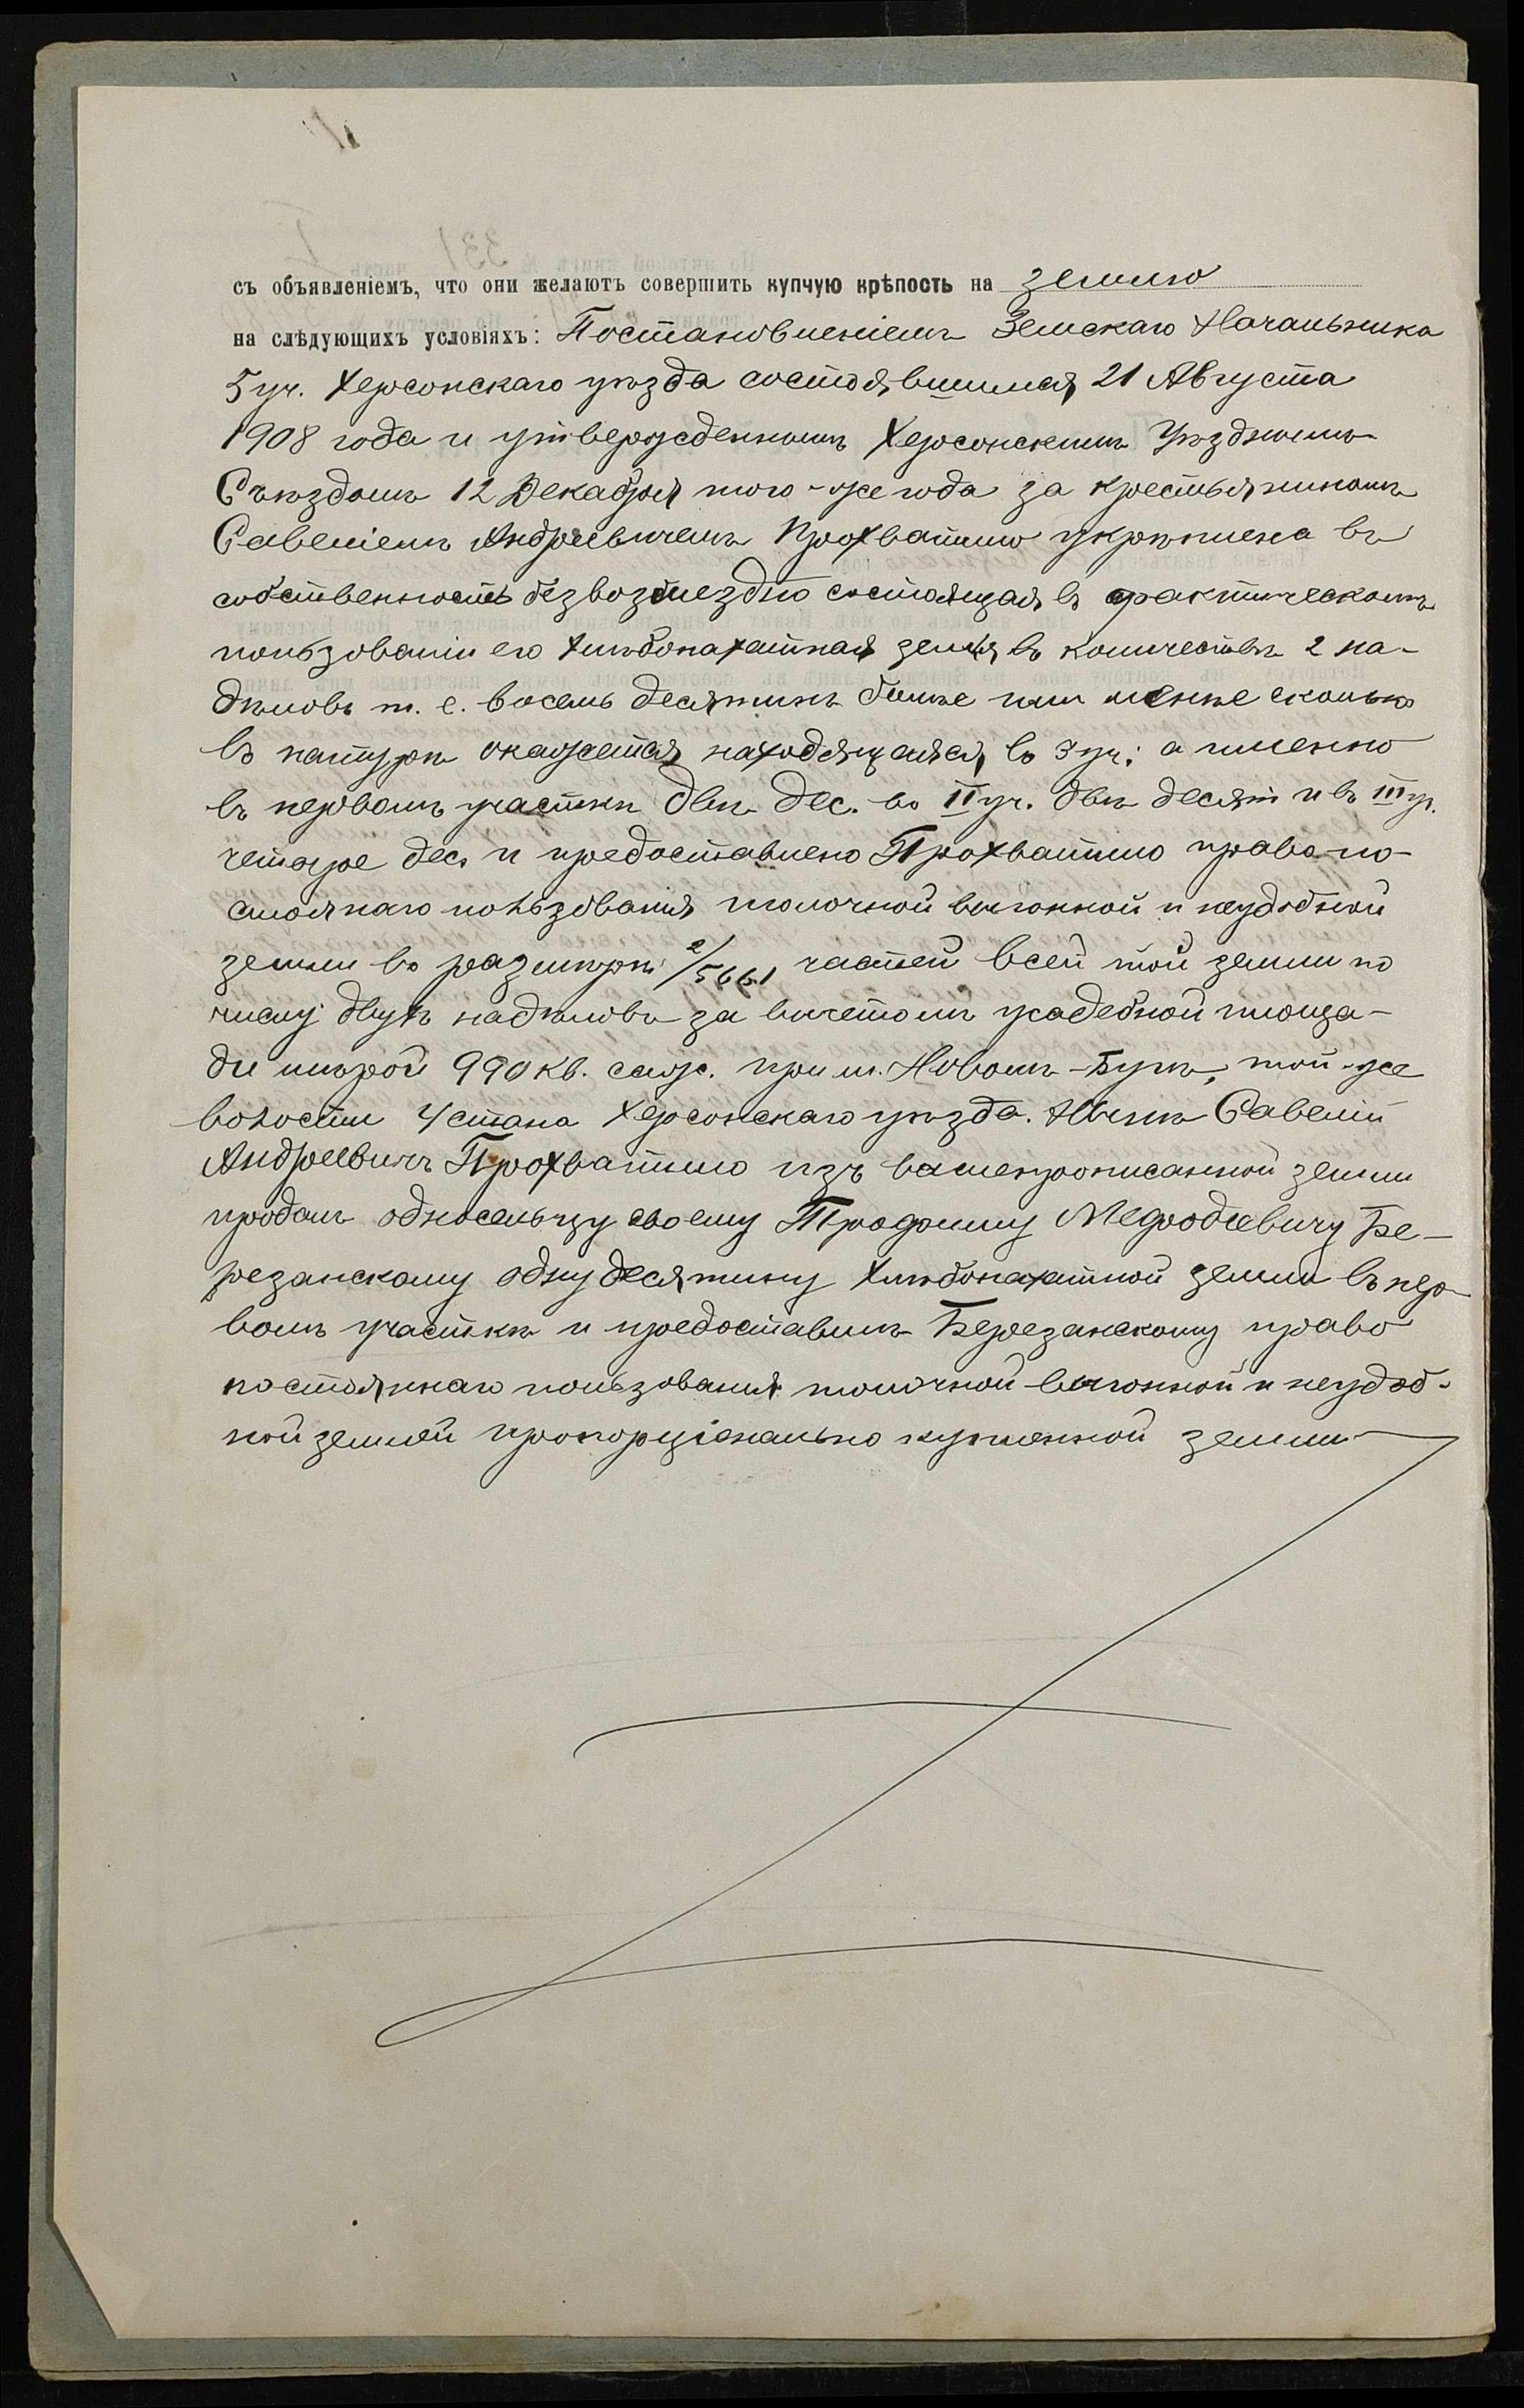 съ объявленіемъ, что они желаютъ совершить купчую крѣпость на землю
на слѣдующихъ условіяхъ: Постановленіемъ Земскаго Начальника
5 уч. Херсонскаго уѣзда состоявшимся 21 Августа
1908 года и утвержденнымъ Херсонскимъ Уѣзднымъ
Съѣздомъ 12 Декабря того-же года за крестьяниномъ
Савеліемъ Андреевичемъ Прохватило укрѣплена въ
собственность безвозмездно состоящая въ фактическомъ
пользованіи его хлѣбопахатная земля въ количествѣ 2 на-
дѣловъ т. е. восемь десятинъ болѣе или менѣе сколько
въ натурѣ окажется находящаяся въ 3 уч: а именно
въ первомъ участкѣ двѣ дес. во II уч. двѣ десят и въ III уч.
четыре дес. и предоставлено Прохватило право по-
стояннаго пользованія толочной выгонной и неудобной
земли въ размѣрѣ 2/5661 частей всей той земли по
числу двухъ надѣловъ за вычетомъ усадебной площа-
ди мѣрой 990 кв. саж. при м. Новомъ-Бугѣ, той-же
волости 4 стана Херсонскаго уѣзда. Нынѣ Савелій
Андреевичъ Прохватило изъ вышепрописанной земли
продалъ односельцу своему Трофиму Мефодіевичу Бе-
резанскому одну десятину хлѣбопахатной земли въ пер-
вомъ участкѣ и предоставилъ Березанскому право
постояннаго пользованія толочной выгонной и неудоб-
ной землей пропорціонально купленной земли